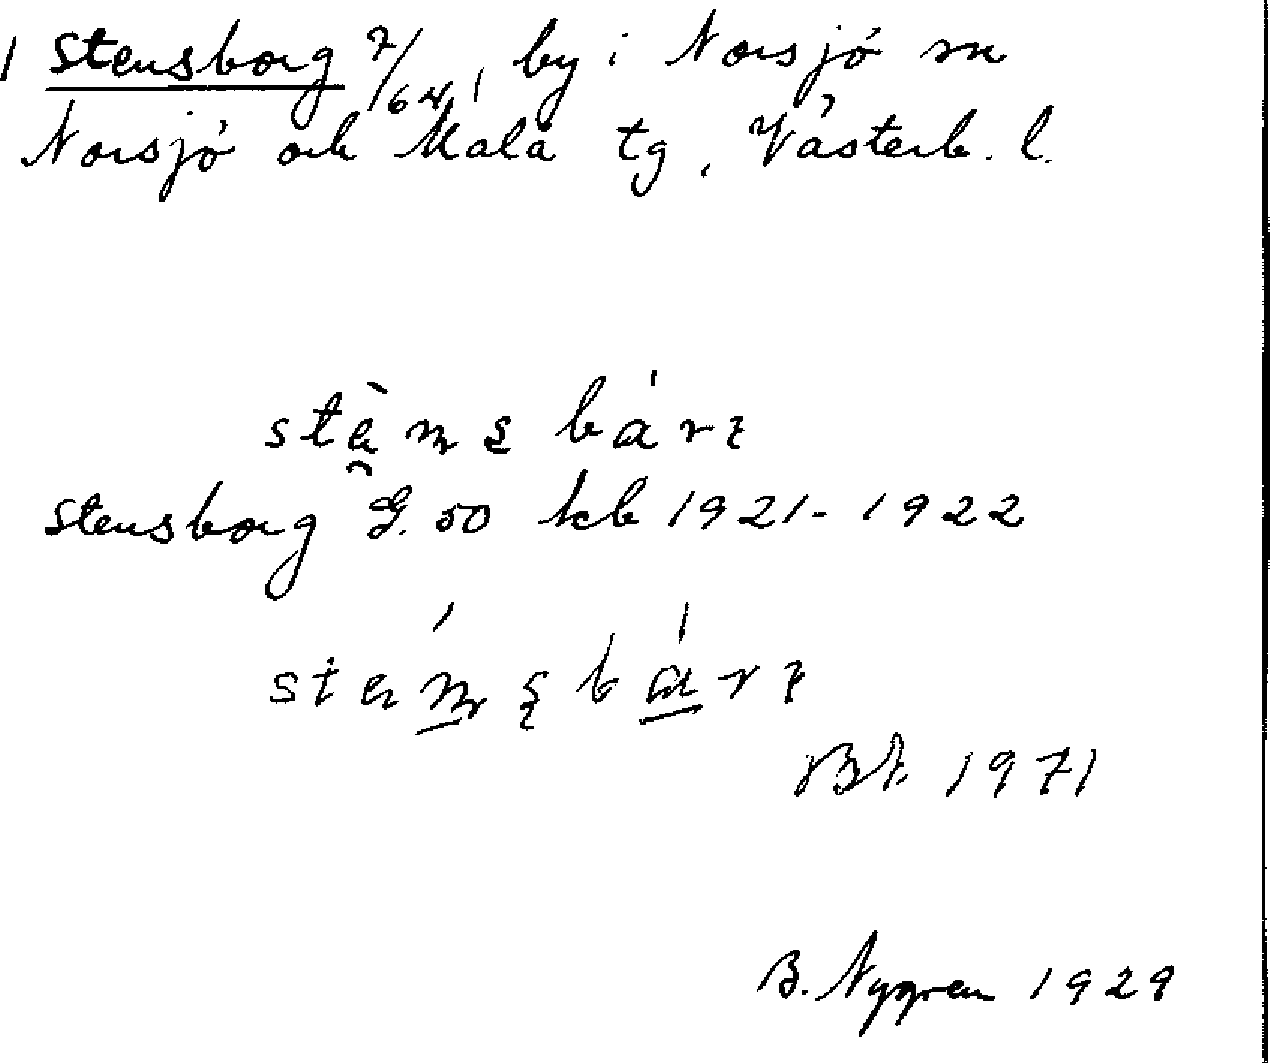 1 Stensborg 7/64, by i Norsjö sn
Norsjö och Malå tg, Västerb. l.
Stensborg G. 50 kb 1921-1922
1971
B. Nygren 1929